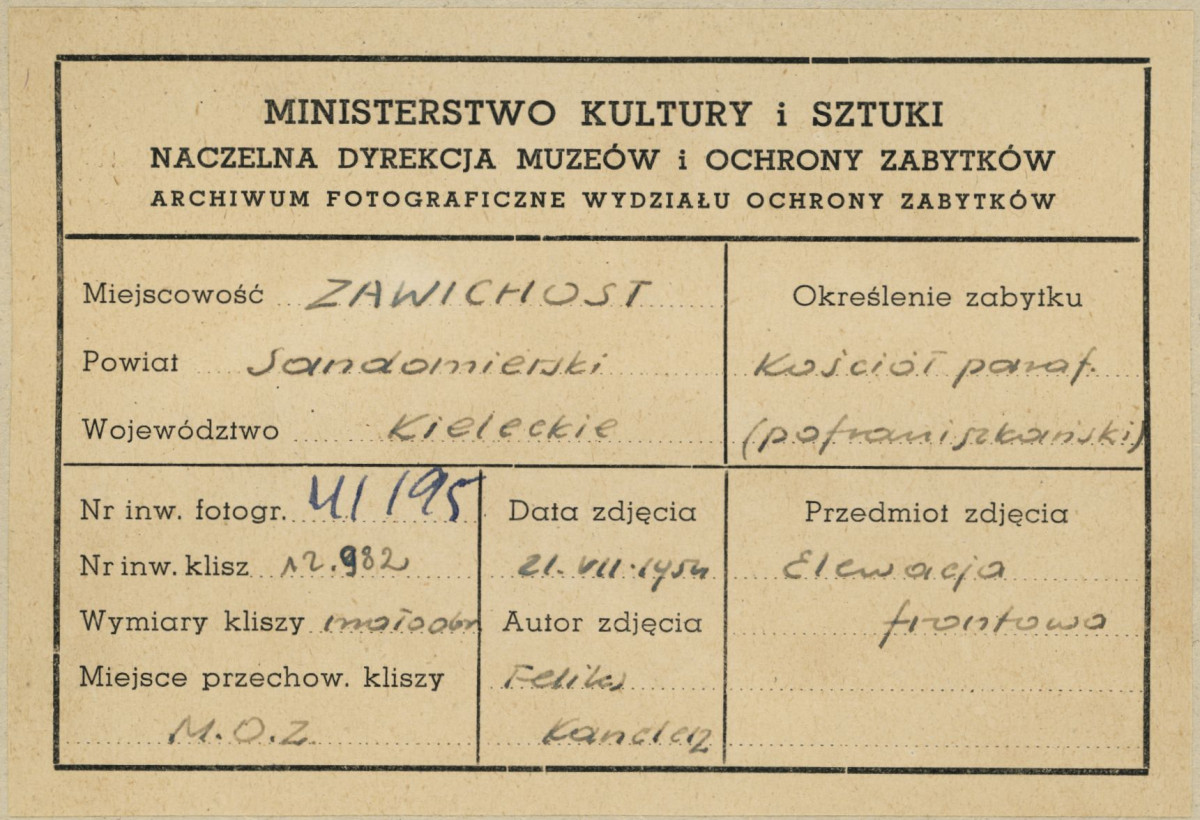 MINISTERSTWO KULTURY i SZTUKI
NACZELNA DYREKCJA MUZEÓW i OCHRONY ZABYTKÓW
ARCHIWUM FOTOGRAFICZNE WYDZIAŁU OCHRONY ZABYTKÓW
Miejscowość ZAWICHOST
Powiat Sandomierski
Województwo Kieleckie
Określenie zabytku
Kościół paraf.
(pofraniszkański)
Nr inw. fotogr.
Nr inw. klisz 12.982
Wymiary kliszy małoobr
Miejsce przechow. kliszy
M.O.Z
Data zdjęcia
21.VII.1954
Autor zdjęcia
Feliks
Kanclerz
Przedmiot zdjęcia
Elewacja
frontowa